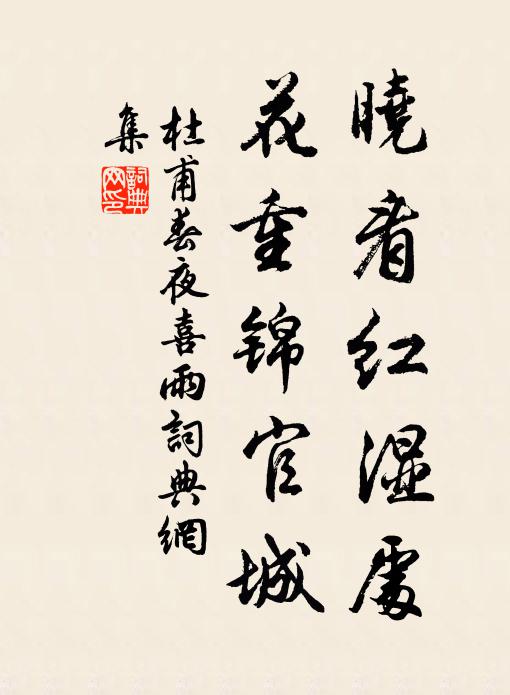 曉看紅濕處
花重錦官城
杜甫春夜喜雨詞典網
集
詞典网印